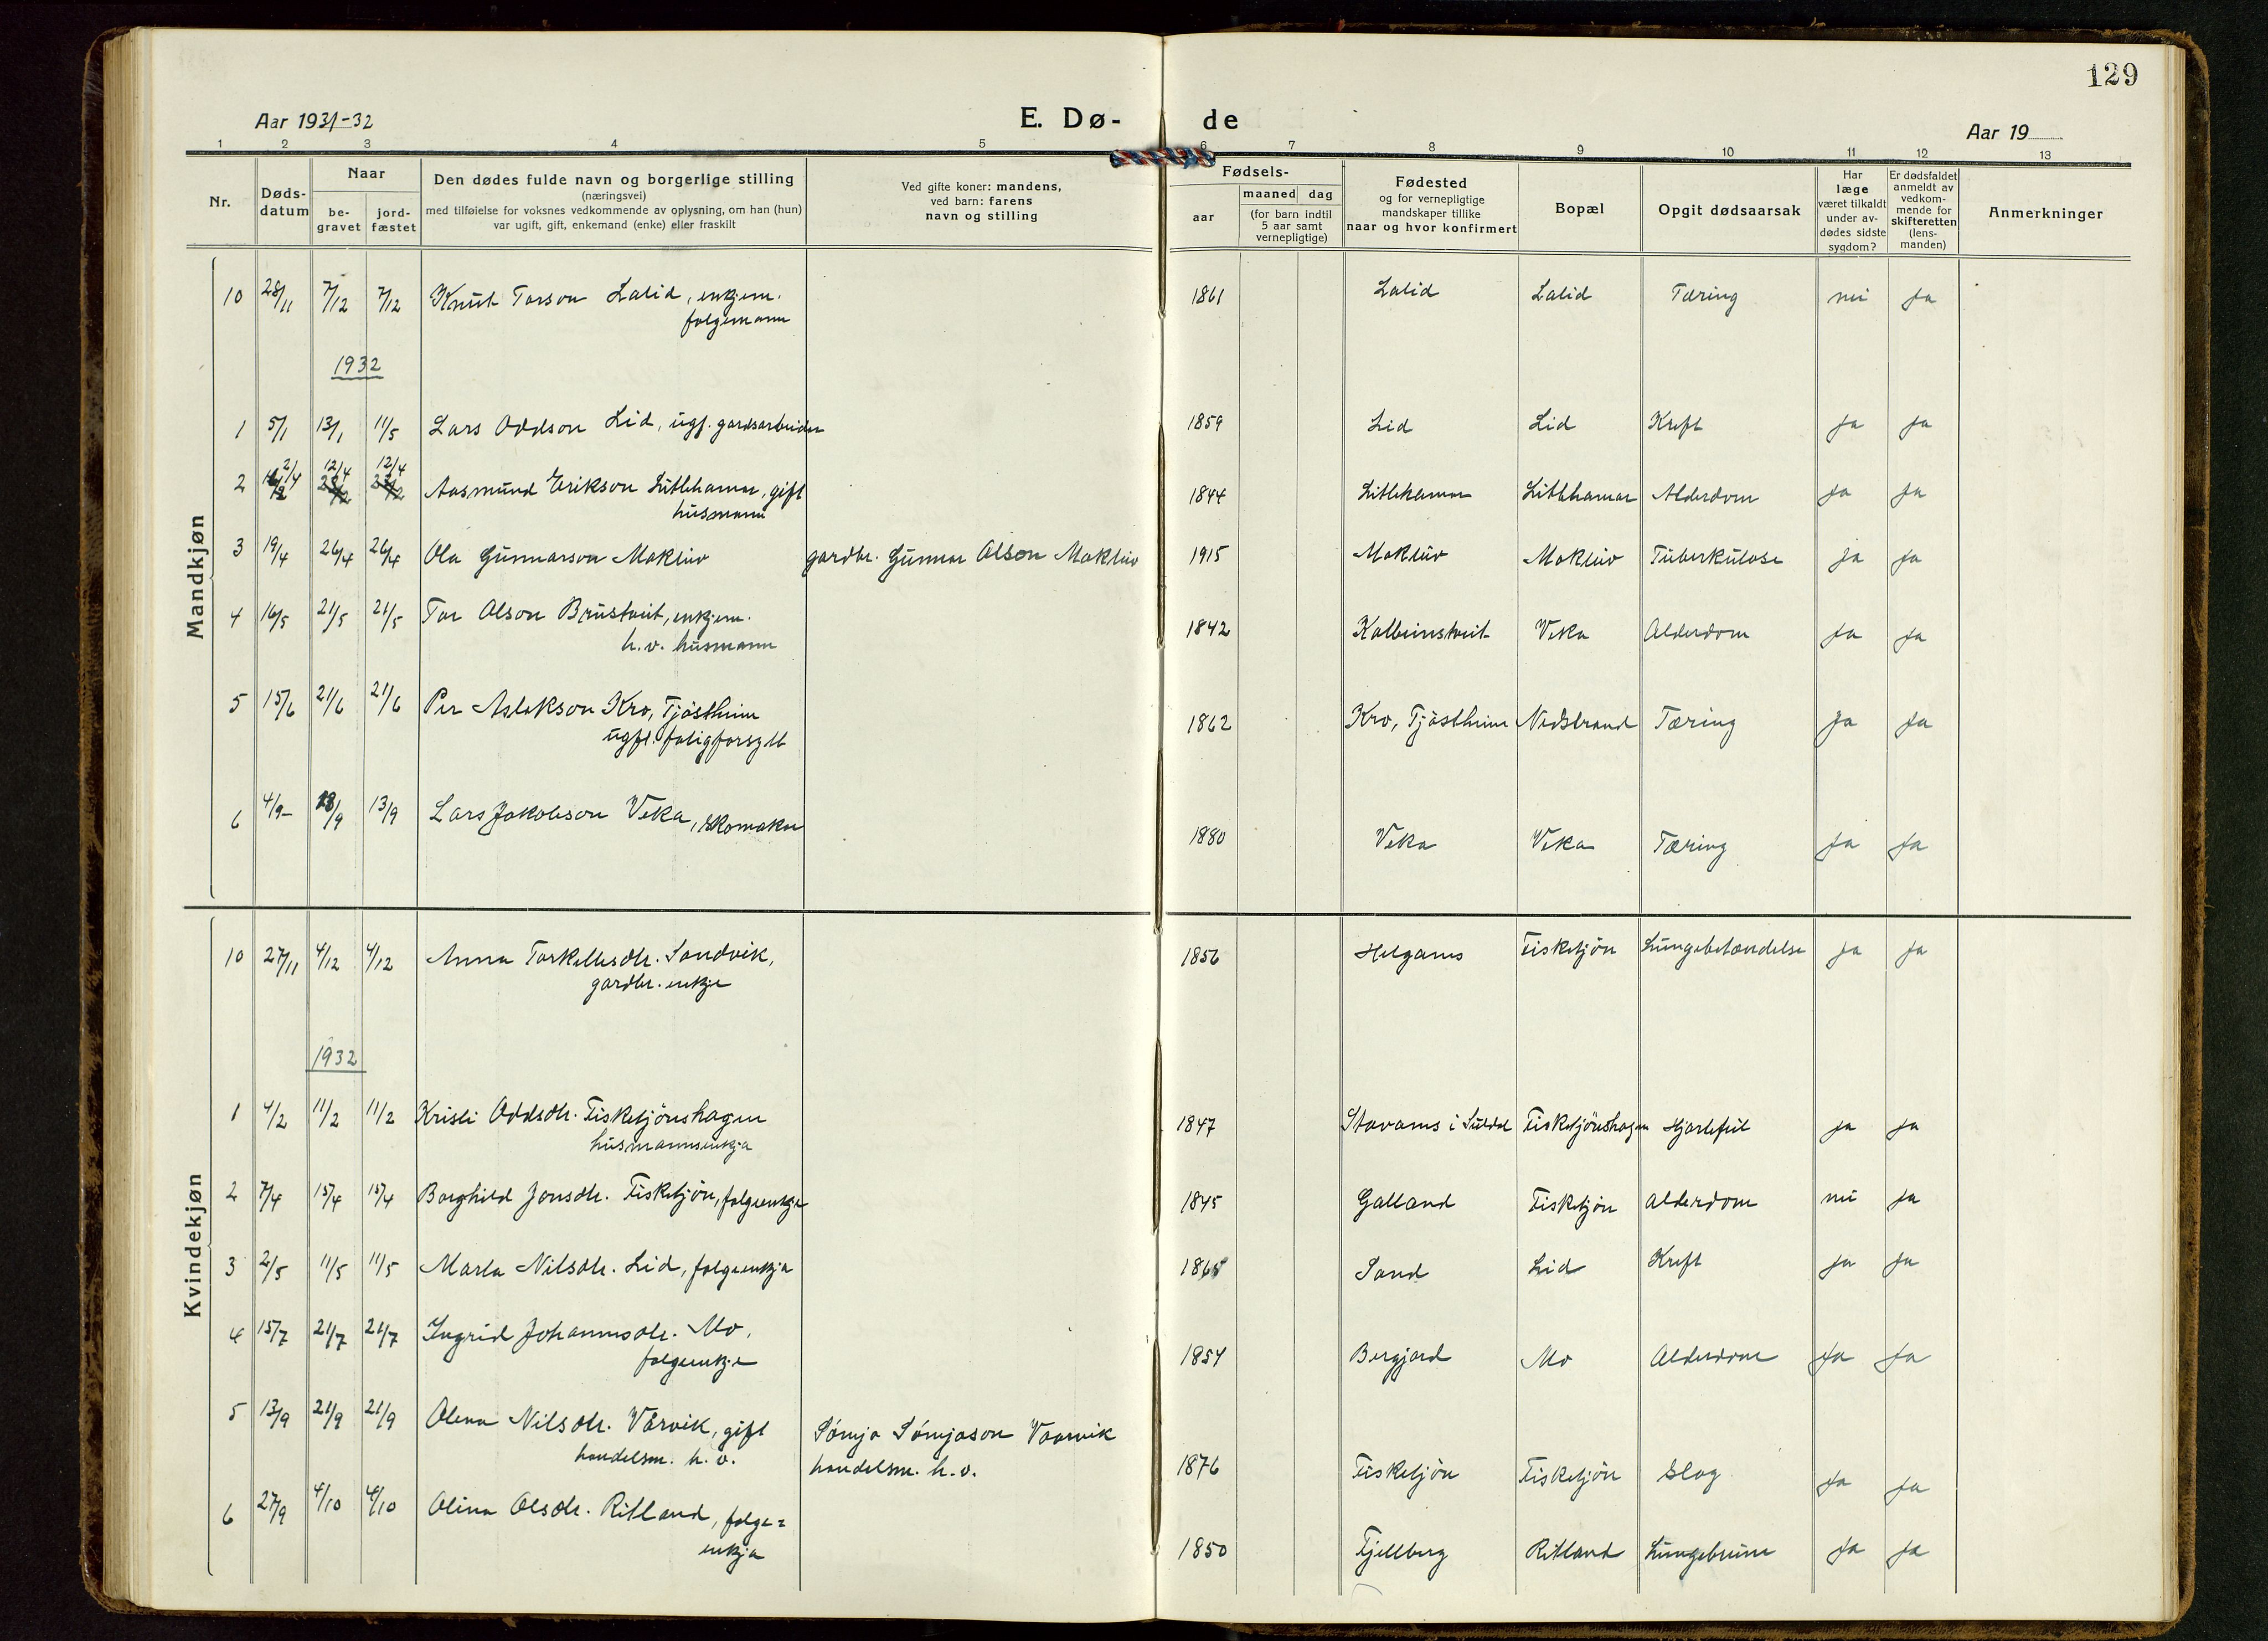 129
Aar 1931-32
E. Dø- de
Aar 19
1 2 3 4 5 6 7 8 9 10 11 12 13
Nr.
Døds-
datum
Naar
be-
gravet
jord-
fæstet
Den dødes fulde navn og borgerlige stilling
(næringsvei)
med tilføielse for voksnes vedkommende av oplysning, om han (hun)
var ugift, gift, enkemand (enke) eller fraskilt
Ved gifte koner: mandens,
ved barn: farens
navn og stilling
Fødsels-
aar
maaned dag
(for barn indtil
5 aar samt
vernepligtige)
Fødested
og for vernepligtige
mandskaper tillike
naar og hvor konfirmert
Bopæl
Opgit dødsaarsak
Har
læge
været tilkaldt
under av-
dødes sidste
sygdom?
Er dødsfaldet
anmeldt av
vedkom-
mende for
skifteretten
(lens-
manden)
Anmerkninger
Mandkjøn
10 28/11 7/12 7/12 Knut Torson Lalid, enkjem. 1861 Lalid Lalid Tæring nei ja
folgemann
1932
1 5/1 13/1 11/5 Lars Oddson Lid, ugf. gardsarbeider 1859 Lid Lid Kreft ja ja
2 2/4 12/4 12/4 Aasmund Erikson Litlehamar, gift 1844 Litlehamar Litlehamar Alderdom ja ja
husmann
3 19/4 26/4 26/4 Ola Gunnarson Mokleiv gardbr. Gunnar Olson Mokleiv 1915 Mokleiv Mokleiv Tuberkulose ja ja
4 16/5 21/5 21/5 Tor Olson Brustveit, enkjem. 1842 Kolbeinstveit Veka Alderdom ja ja
h.v. husmann
5 15/6 21/6 21/6 Per Aslakson Kro, Tjøstheim 1862 Kro, Tjøstheim Nedstrand Tæring ja ja
ugft. fatigforsytt
6 4/9 13/9 13/9 Lars Jakobson Veka, skomakar 1880 Veka Veka Tæring ja ja
Kvindekjøn
10 27/11 4/12 4/12 Anna Torkellsdtr. Sandvik, 1856 Helganes Fisketjøn Lungebetændelse ja ja
gardbr. enkje
1932
1 4/2 11/2 11/2 Kristi Oddsdtr. Fisketjønshagen 1847 Stavanes i Suldal Fisketjønshagen Hjartefeil ja ja
husmannsenkja
2 7/4 15/4 15/4 Borghild Jonsdtr. Fisketjøn, folgeenkje 1845 Galland Fisketjøn Alderdom nei ja
3 2/5 11/5 11/5 Marta Nilsdtr. Lid, folgeenkja 1865 Sand Lid Kreft ja ja
4 15/7 21/7 21/7 Ingrid Johannesdtr. Mo, 1854 Bergjord Mo Alderdom ja ja
folgeenkje
5 13/9 21/9 21/9 Olena Nilsdtr. Vårvik, gift Sømja Sømjason Vaarvik 1876 Fisketjøn Fisketjøn Slag ja ja
handelsm. h.v. handelsm. h.v.
6 27/9 4/10 4/10 Olina Olsdtr. Ritland, folge= 1850 Fjellberg Ritland Lungebrune ja ja
enkja